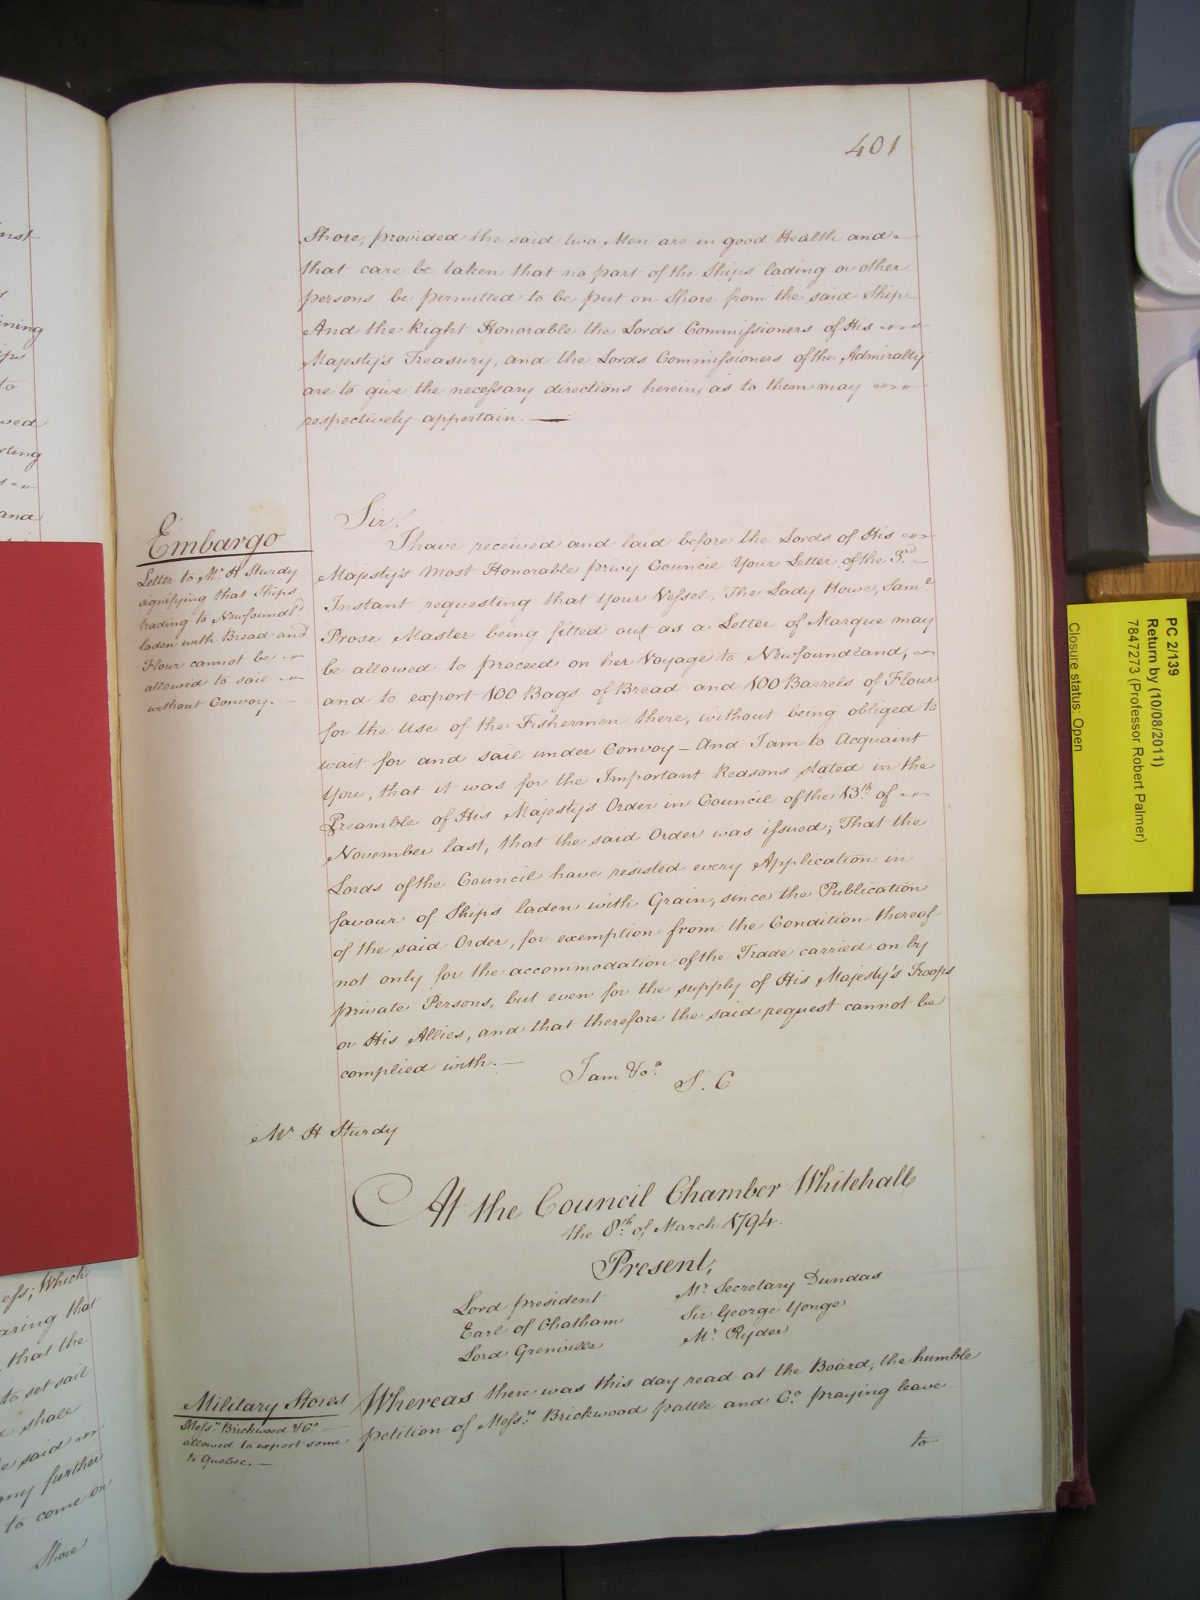 401
Shore, provided the said two Men are in good Health and
that care be taken that no part of the Ships lading or other
persons be permitted to be put on Shore from the said Ship
And the Right Honorable the Lords Commissioners of His
Majesty's Treasury, and the Lords Commissioners of the Admiralty
are to give the necessary directions herein, as to them may
respectively appertain. —
Embargo
Letter to Mr. H Sturdy
signifying that Ships
trading to Newfoundld
laden with Bread and
Flour cannot be
allowed to sail
without Convoy. —
Sir!
I have received and laid before the Lords of His
Majesty's most Honorable privy Council Your Letter of the 3rd
Instant requesting that your Vessel, The Lady Howe, Saml.
Prose Master being fitted out as a Letter of Marque may
be allowed to proceed on her Voyage to Newfoundland,
and to export 100 Bags of Bread and 100 Barrels of Flour
for the Use of the Fishermen there, without being obliged to
wait for and sail under Convoy – And I am to Acquaint
You, that it was for the Important Reasons stated in the
Preamble of His Majesty's Order in Council of the 13th of
November last, that the said Order was issued; That the
Lords of the Council have resisted every Application in
favour of Ships laden with Grain, since the Publication
of the said Order, for exemption from the Condition thereof
not only for the accommodation of the Trade carried on by
private Persons, but even for the supply of His Majesty's Troops
or His Allies, and that therefore the said request cannot be
complied with. —
I am &ca.
S. C
Mr. H Sturdy
At the Council Chamber Whitehall
the 8th. of March 1794.
Present,
Lord president
Earl of Chatham
Lord Grenville
Mr. Secretary Dundas
Sir George Yonge
Mr. Ryder
Military Stores
Messrs. Brickwood & Co.
allowed to export some
to Quebec. —
Whereas there was this day read at the Board, the humble
petition of Messrs. Brickwood pattle and Co. praying leave
to
ining
to
and
ess; Which
aring that
that the
to set sail
shall
said
any further
to come on
Shore
PC 2/139
Return by (10/08/2011)
7847273 (Professor Robert Palmer)
Closure status: Open